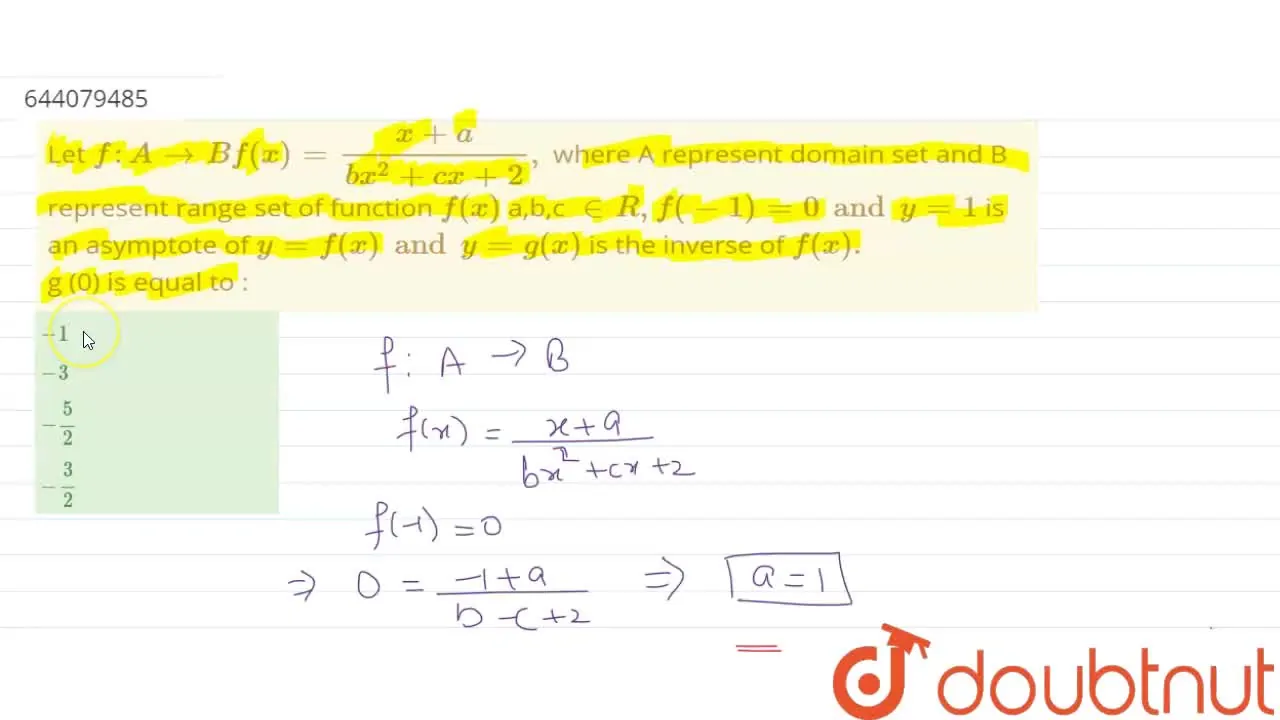 644079485
Let f : A → B f(x) = (x + a)/(bx² + cx + 2), where A represent domain set and B
represent range set of function f(x) a,b,c ∈ R, f(−1) = 0 and y = 1 is
an asymptote of y = f(x) and y = g(x) is the inverse of f(x).
g (0) is equal to :
−1
−3
−5/2
−3/2
f: A → B
f(x) = (x+a)/(bx²+cx+2)
f(-1) = 0
⇒ 0 = (-1+a)/(b-c+2) ⇒ a=1
doubtnut